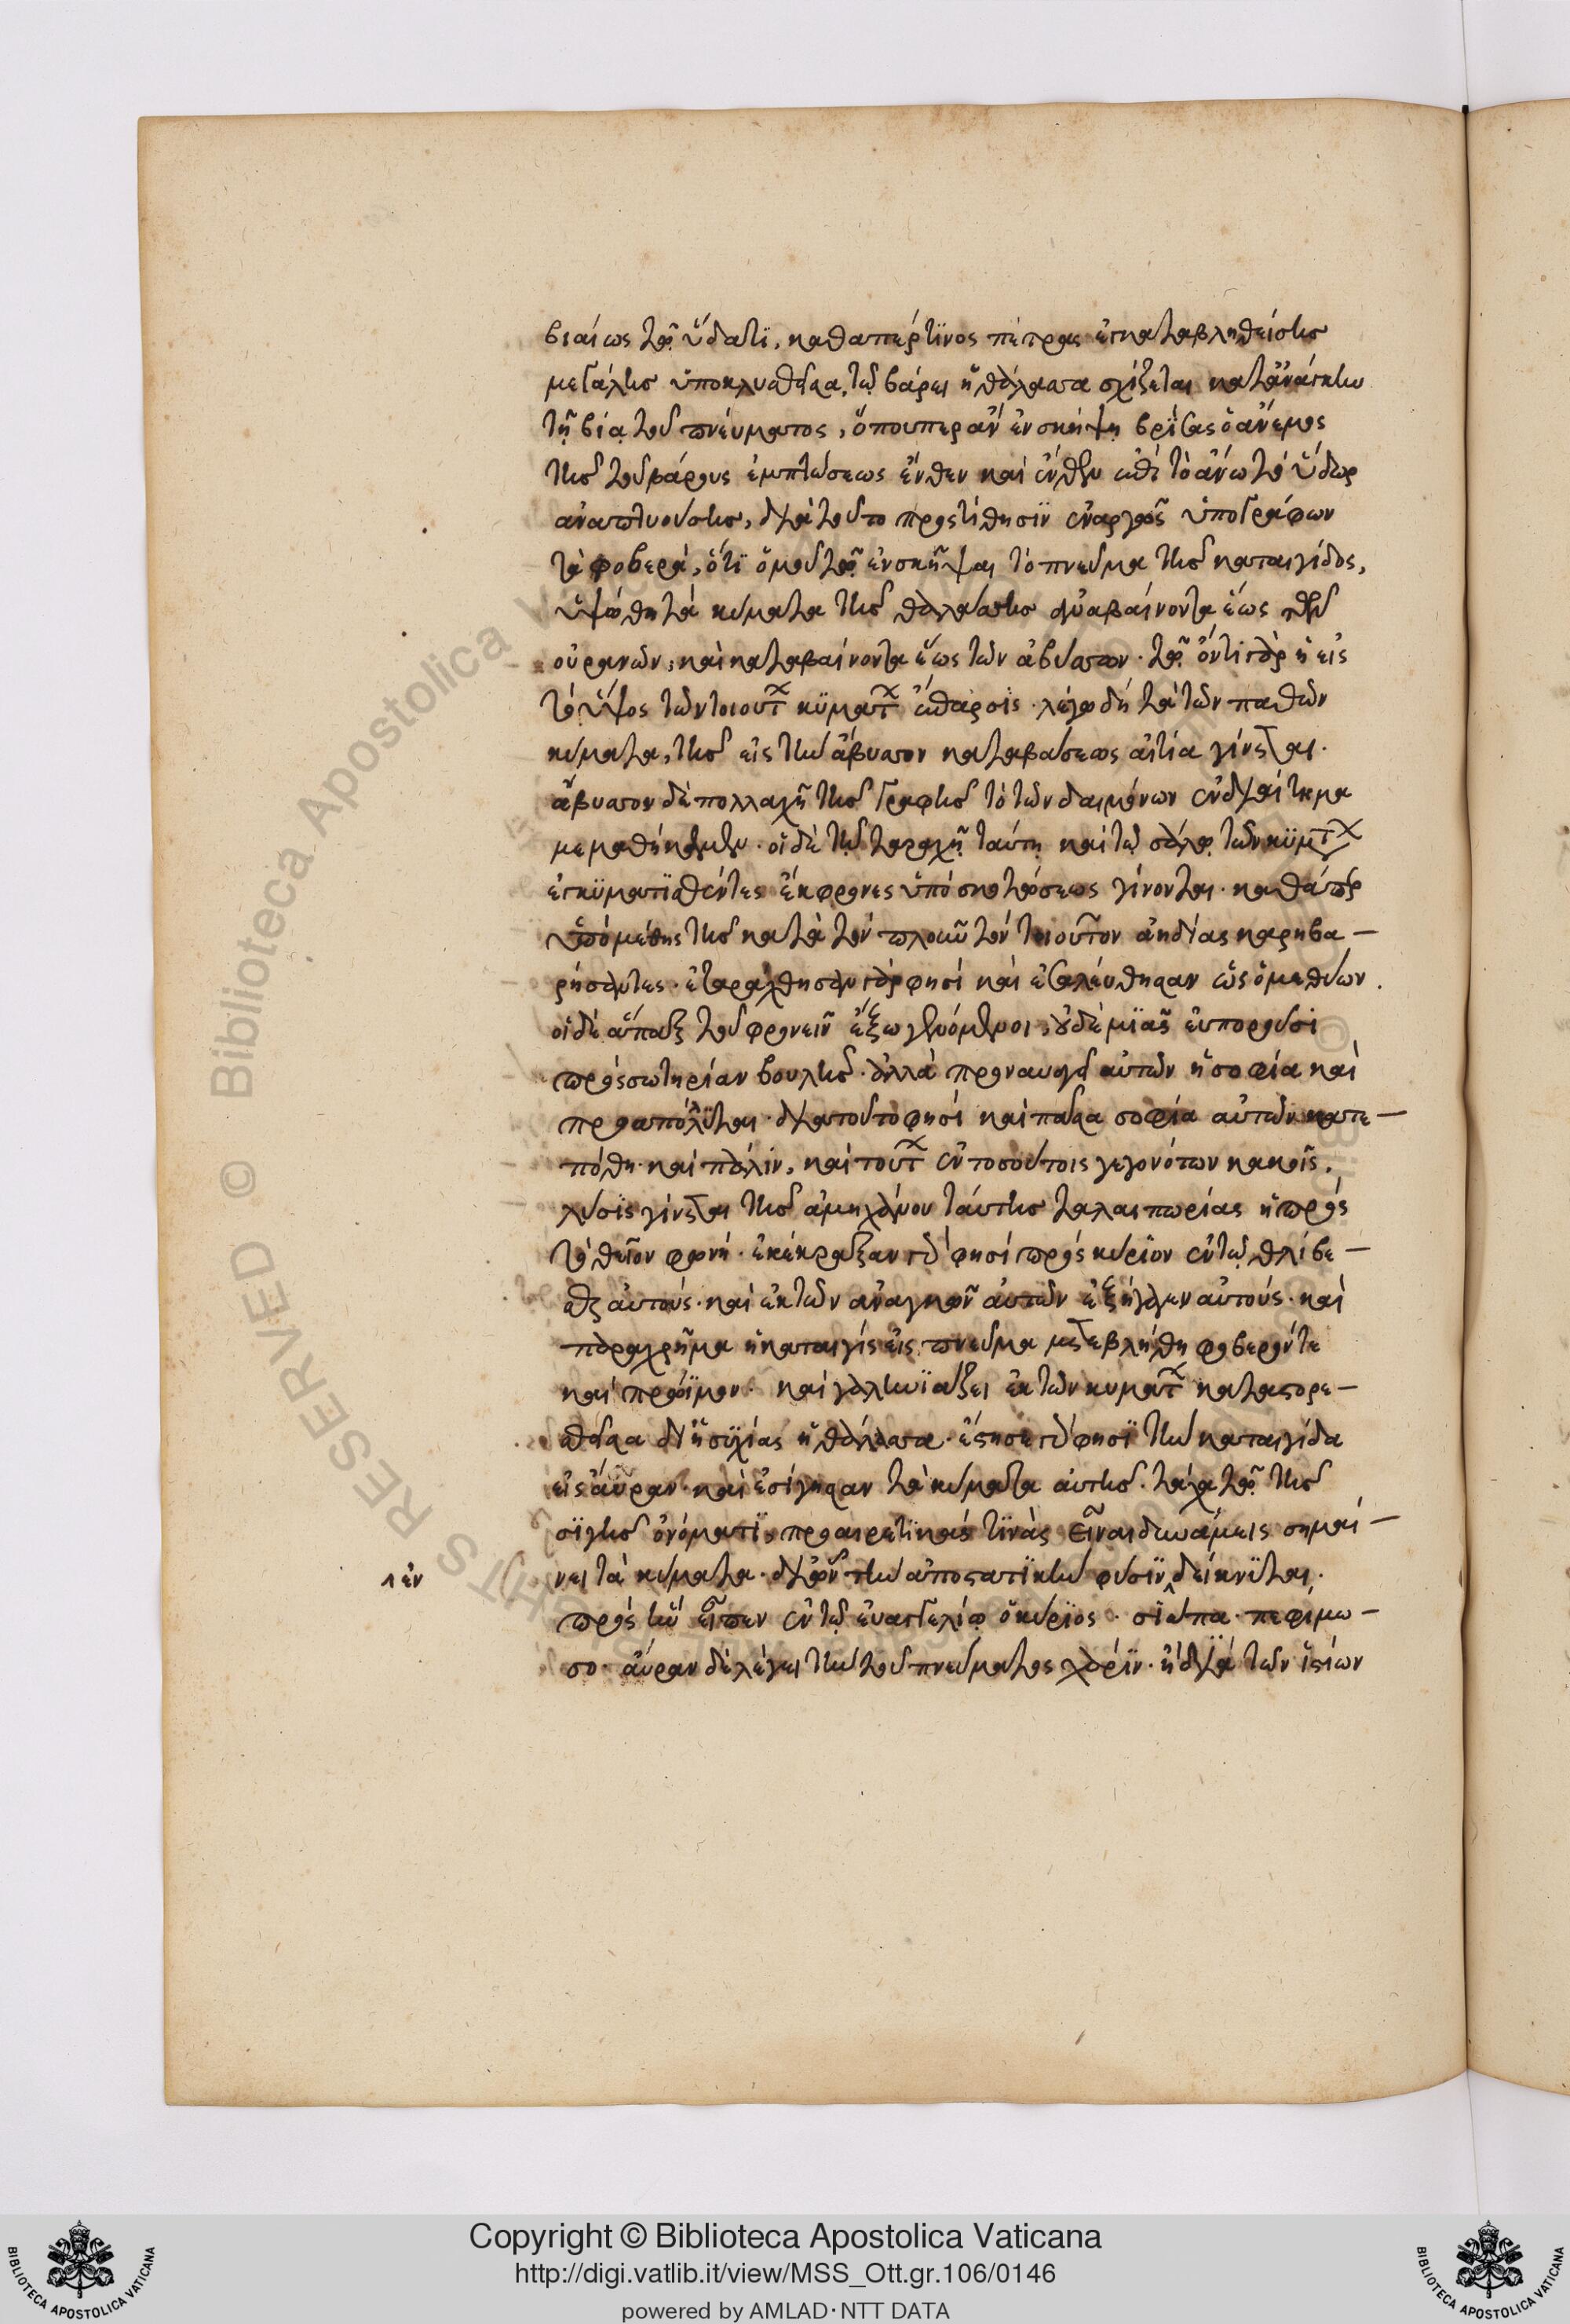 βιαίως τῶ ὕδατι, καθαπέρ τινος πέτρας ἐγκαταβληθείσης
μεγάλης ὑποκλυσθεῖσα, τῷ βάρει ἡ θάλασσα σχίζεται κατανάγκην
τῇ βίᾳ τοῦ πνεύματος, ὅπουπερ ἂν ἐνσκήψῃ βρίσας ὁ ἄνεμος
τῆς τοῦ βάρους ἐμπτώσεως ἔνθεν καὶ ἔνθεν ἐπὶ τὸ ἄνω τὸ ὕδωρ
ἀναπτυούσης, διὰ τοῦτο προστίθησιν ἐναργῶς ὑπογράφων
τὰ φοβερά, ὅτι ὁμοῦ τῶ ἐνσκῆψαι τὸ πνεῦμα τῆς καταιγίδος,
ὑψώθη τὰ κύματα τῆς θαλάσσης ἀναβαίνοντα ἕως τῶν
οὐρανῶν, καὶ καταβαίνοντα ἕως τῶν ἀβύσσων. τῶ ὄντι γὰρ ἡ εἰς
τὸ ὕψος τῶν τοιούτ κυμάτ ἔπαρσις. λέγω δὴ τὰ τῶν παθῶν
κύματα, τῆς εἰς τὴν ἄβυσσον καταβάσεως αἰτία γίνεται.
ἄβυσσον δὲ πολλαχῆ τῆς γραφῆς τὸ τῶν δαιμόνων ἐνδιαίτημα
μεμαθήκαμεν. οἱ δὲ τῇ ταραχῇ ταύτῃ καὶ τῷ σάλῳ τῶν κυμτ
ἐγκυματισθέντες ἔκφρονες ὑπὸ σκοτώσεως γίνονται. καθάπερ
ὑπὸ μέθης τῆς κατὰ τὸν πλοῦν τὸν τοιοῦτον ἀηδίας καρηβα–
ρήσαντες. ἐταράχθησαν γάρ φησι καὶ ἐσαλεύθησαν ὡς ὁ μεθύων.
οἱ δὲ ἅπαξ τοῦ φρονεῖν ἔξω γενόμενοι, οὐδὲ μιᾶς εὐποροῦσι
πρὸς σωτηρίαν βουλῆς. ἀλλὰ προναυαγεῖ αὐτῶν ἡ σοφία καὶ
προαπόλλυται. διὰ τοῦτό φησι καὶ πᾶσα σοφία αὐτῶν κατε–
πόθη. καὶ πάλιν, καὶ τούτ ἐν τοσούτοις γεγονότων κακοῖς,
λύσις γίνεται τῆς ἀμηχάνου ταύτης ταλαιπωρίας ἡ πρὸς
τὸ θεῖον φωνή. ἐκέκραξαν γάρ φησι πρὸς κύριον ἐν τῷ θλίβε–
σθαι αὐτούς. καὶ ἐκ τῶν ἀναγκῶν αὐτῶν ἐξήγαγεν αὐτούς. καὶ
παραχρῆμα ἡ καταιγὶς εἰς πνεῦμα μετεβλήθη φοβερόν τε
καὶ πρόϊμον. καὶ γαληνιάζει ἐκ τῶν κυμάτ καταστορε–
σθεῖσα δι' ἡσυχίας ἡ θάλασσα. ἔστησε γάρ φησι τὴν καταιγίδα
εἰς αὔραν. καὶ ἐσίγησαν τὰ κύματα αὐτῆς. τάχα τῶ τῆς
σιγῆς ὀνόματι, προαιρετικάς τινὰς εἶναι δυνάμεις σημαί–
νει τὰ κύματα. δι' ὧν τὴν ἀποστατικὴν φύσιν δείκνυται.
πρὸς ἣν εἶπεν ἐν τῷ εὐαγγελίῳ ὁ κύριος. σιώπα. πεφίμω–
σο. αὔραν δὲ λέγει τὴν τοῦ πνεύματος χάριν. ἡ διὰ τῶν ἱστίων
Copyright © Biblioteca Apostolica Vaticana
http://digi.vatlib.it/view/MSS_Ott.gr.106/0146
powered by AMLAD·NTT DATA
BIBLIOTECA APOSTOLICA VATICANA
BIBLIOTECA APOSTOLICA VATICANA